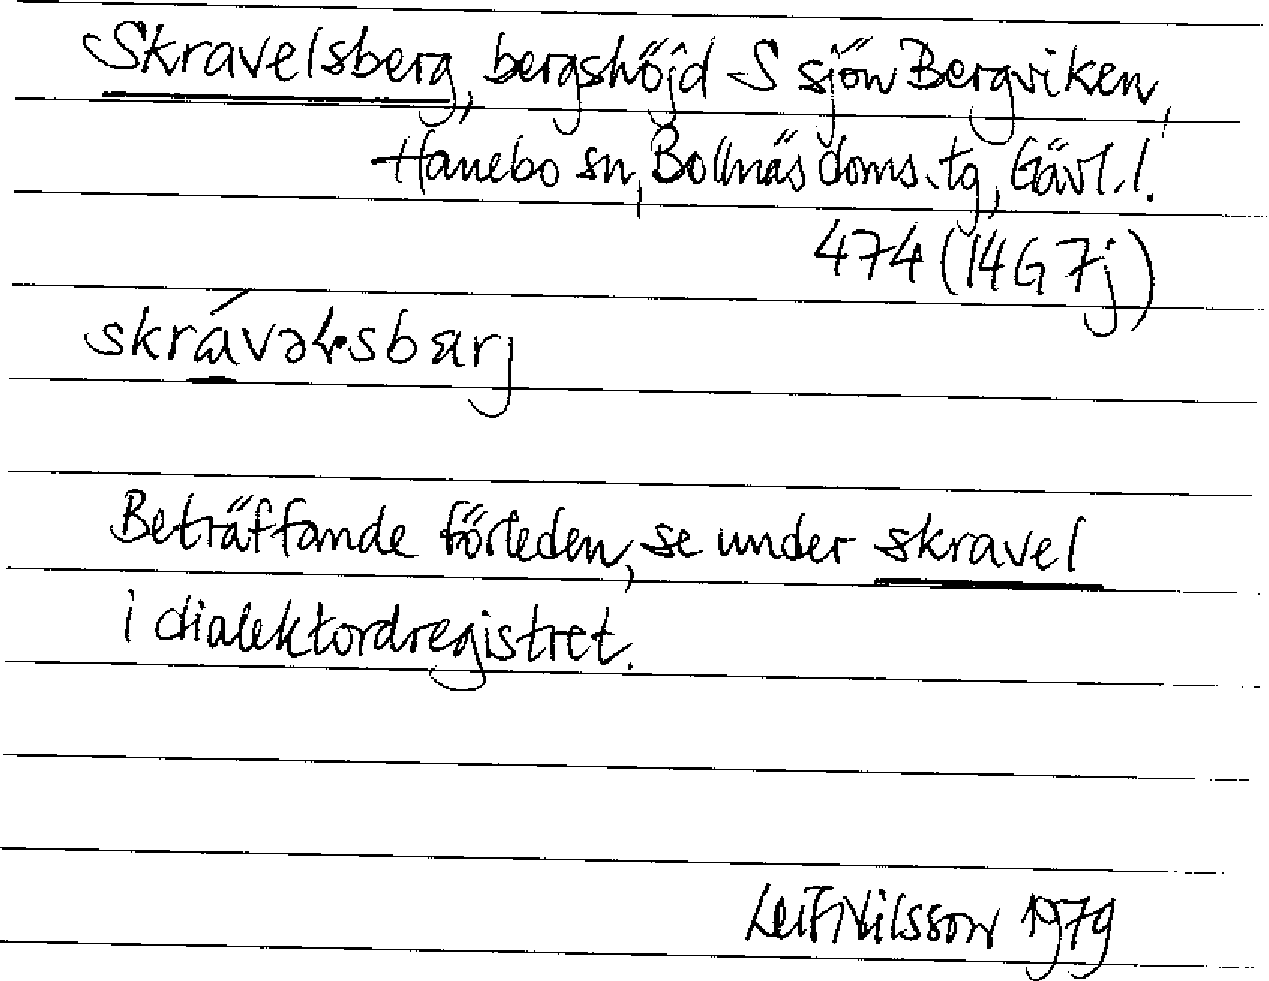 Skravelsberg, bergshöjd S sjön Bergviken,
Hanebo sn, Bollnäs doms.tg, Gävl.l.
474 (14G7j)
Beträffande förleden, se under skravel
i dialektordregistret.
Leif Nilsson 1979